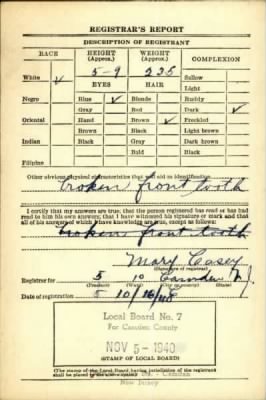 REGISTRAR'S REPORT
DESCRIPTION OF REGISTRANT
RACE HEIGHT (Approx.) WEIGHT (Approx.) COMPLEXION
5-9 235
White ✓ Sallow
EYES HAIR Light
Negro Blue ✓ Blonde Ruddy
Gray Red Dark ✓
Oriental Hazel Brown ✓ Freckled
Brown Black Light brown
Indian Black Gray Dark brown
Bald Black
Filipino
Other obvious physical characteristics that will aid in identification
broken front tooth
I certify that my answers are true; that the person registered has read or has had
read to him his own answers; that I have witnessed his signature or mark and that
all of his answers of which I have knowledge are true, except as follows:
broken front tooth
Mary Casey
(Signature of registrar)
Registrar for 5 10 Camden NJ
(Precinct) (Ward) (City or county) (State)
Date of registration 10/16/40
Local Board No. 7
For Camden County
NOV 5 - 1940
(STAMP OF LOCAL BOARD)
(The stamp of the Local Board having jurisdiction of the registrant
shall be placed in the above space.)
Camden
New Jersey